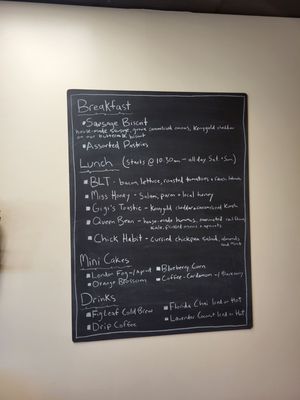 Breakfast
Sausage Biscuit
house-made sausage, caramelized onions, Kerrygold cheddar
on our buttermilk biscuit
Assorted Pastries
Lunch (starts @ 10:30am - all day Sat + Sun)
BLT - bacon, lettuce, roasted tomatoes +
Miss Honey - Salami, parm + local honey
Gigi's Toastie - Kerrygold cheddar + caramelized
Queen Bean - house-made hummus, marinated
kale, pickled onions +
Chick Habit - curried chickpea salad, almonds
Mini Cakes
London Fog w/ Apricot
Blueberry Corn
Orange Blossom
Coffee-Cardamom w/ Blackberry
Drinks
Fig Leaf Cold Brew
Florida Chai Iced or Hot
Drip Coffee
Lavender Coconut Iced or Hot